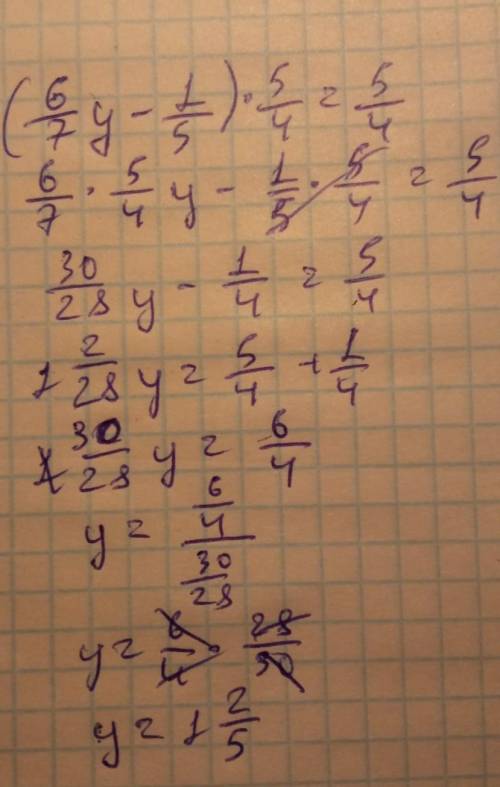 (6/7 y - 1/5) · 5/4 = 5/4
6/7 · 5/4 y - 1/5 · 5/4 = 5/4
30/28 y - 1/4 = 5/4
1 2/28 y = 5/4 + 1/4
30/28 y = 6/4
y = 6/4 / 30/28
y = 6/4 · 28/30
y = 1 2/5